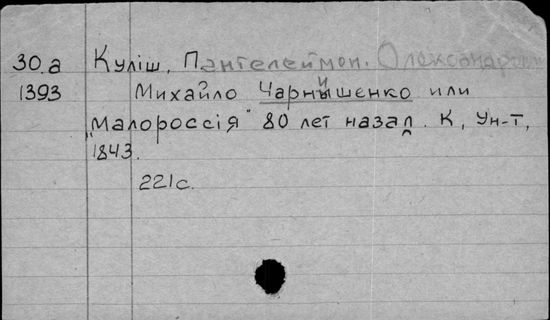 30.а Куліш, Пантелеймон. Олександрович
1393 Михайло Чарнышенко или
„Малороссія" 80 лет назад. К, Ун-т,
1843.
221с.